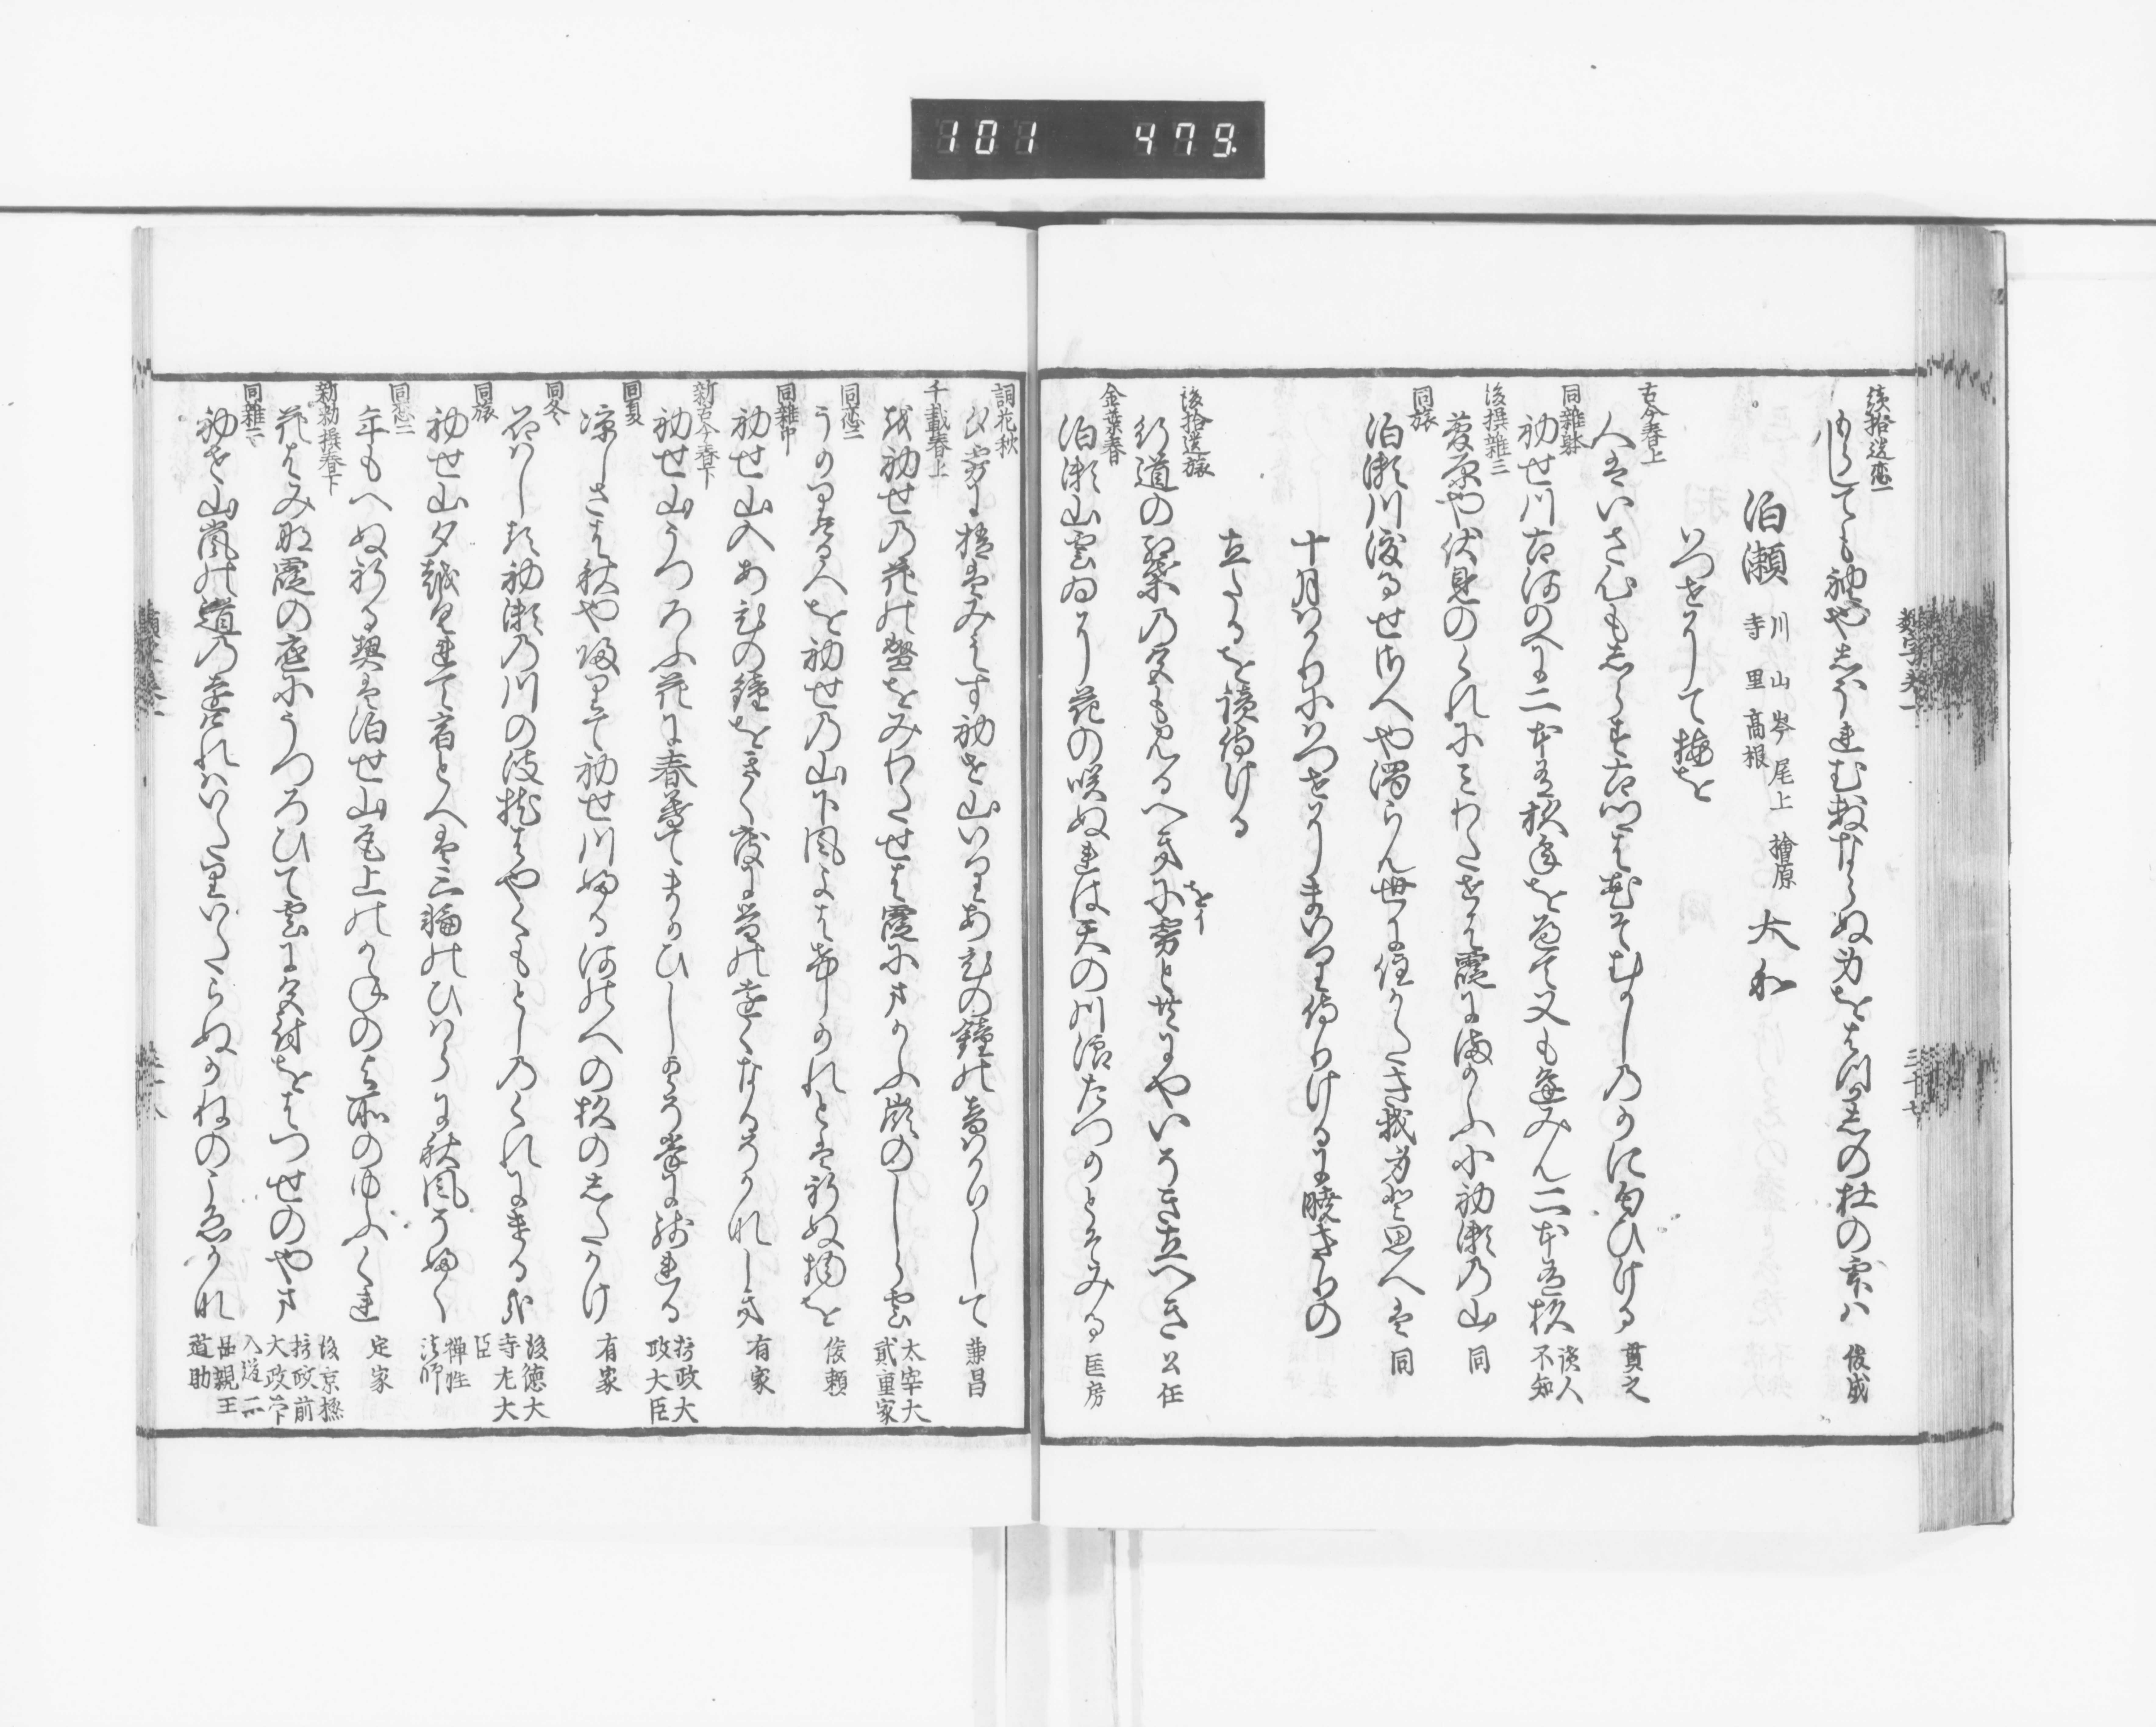 101 479.
続拾遺恋一
もらしても袖やしほれむ数ならぬ身をはつかしの杜の雫は 俊成
泊瀬 川 山 岑 尾上 檜原 寺 里 高根 大和
はつせにて梅を
古今春上
人はいさ心もしらす古郷は花そむかしのかに匂ひける 貫之
同雑躰
初せ川古河のへに二本有杉年をへて又も逢みん二本有杉 読人不知
後撰雑三
菅原や伏見のくれにみわたせは霞にまかふ小初瀬の山 同
同旅
泊瀬川渡るせさへや濁らん世に住かたき我身と思へは 同
十月はかりにはつせにまいり侍りけるに暁きりの
立たるを読侍ける
後拾遺旅
行道の紅葉の色も見るへきに霧と共にやいそき立へき 公任
金葉春
泊瀬山雲ゐに花の咲ぬれは天の川浪たつかとそみる 匡房
詞花秋
夕霧に梢もみえす初せ山いりあひの鐘の音はかりして 兼昌
千載春上
を初せの花の盛をみわたせは霞にまかふ嶺のしら雲 太宰大貳重家
同恋二
うかりける人を初せの山下風よはけしかれとは祈ぬ物を 俊頼
同雑中
初せ山入あひの鐘をきく度に昔の遠くなるそかなしき 有家
新古今春下
初せ山うつろふ花に春暮てまかひし雲そ峯に残れる 摂政大政大臣
同夏
涼しさは秋や帰りて初せ川ふる河のへの杉の下かけ 有家
同冬
石はしる初瀬の川の波枕はやくもとしのくれにける哉 後徳大寺左大臣
同旅
初せ山夕越暮て宿とへは三輪のひはらに秋風そ吹 禅性法師
同恋二
年もへぬ祈る契は泊せ山尾上のかねのよそのゆふくれ 定家
新勅撰春下
花はみな霞の底にうつろひて雲に色付をはつせのやま 後京極摂政前大政大臣
同雑二
初せ山嵐の道の遠けれはいたりいたらぬかねの音かな 入道二品親王道助
類字巻一
三十七